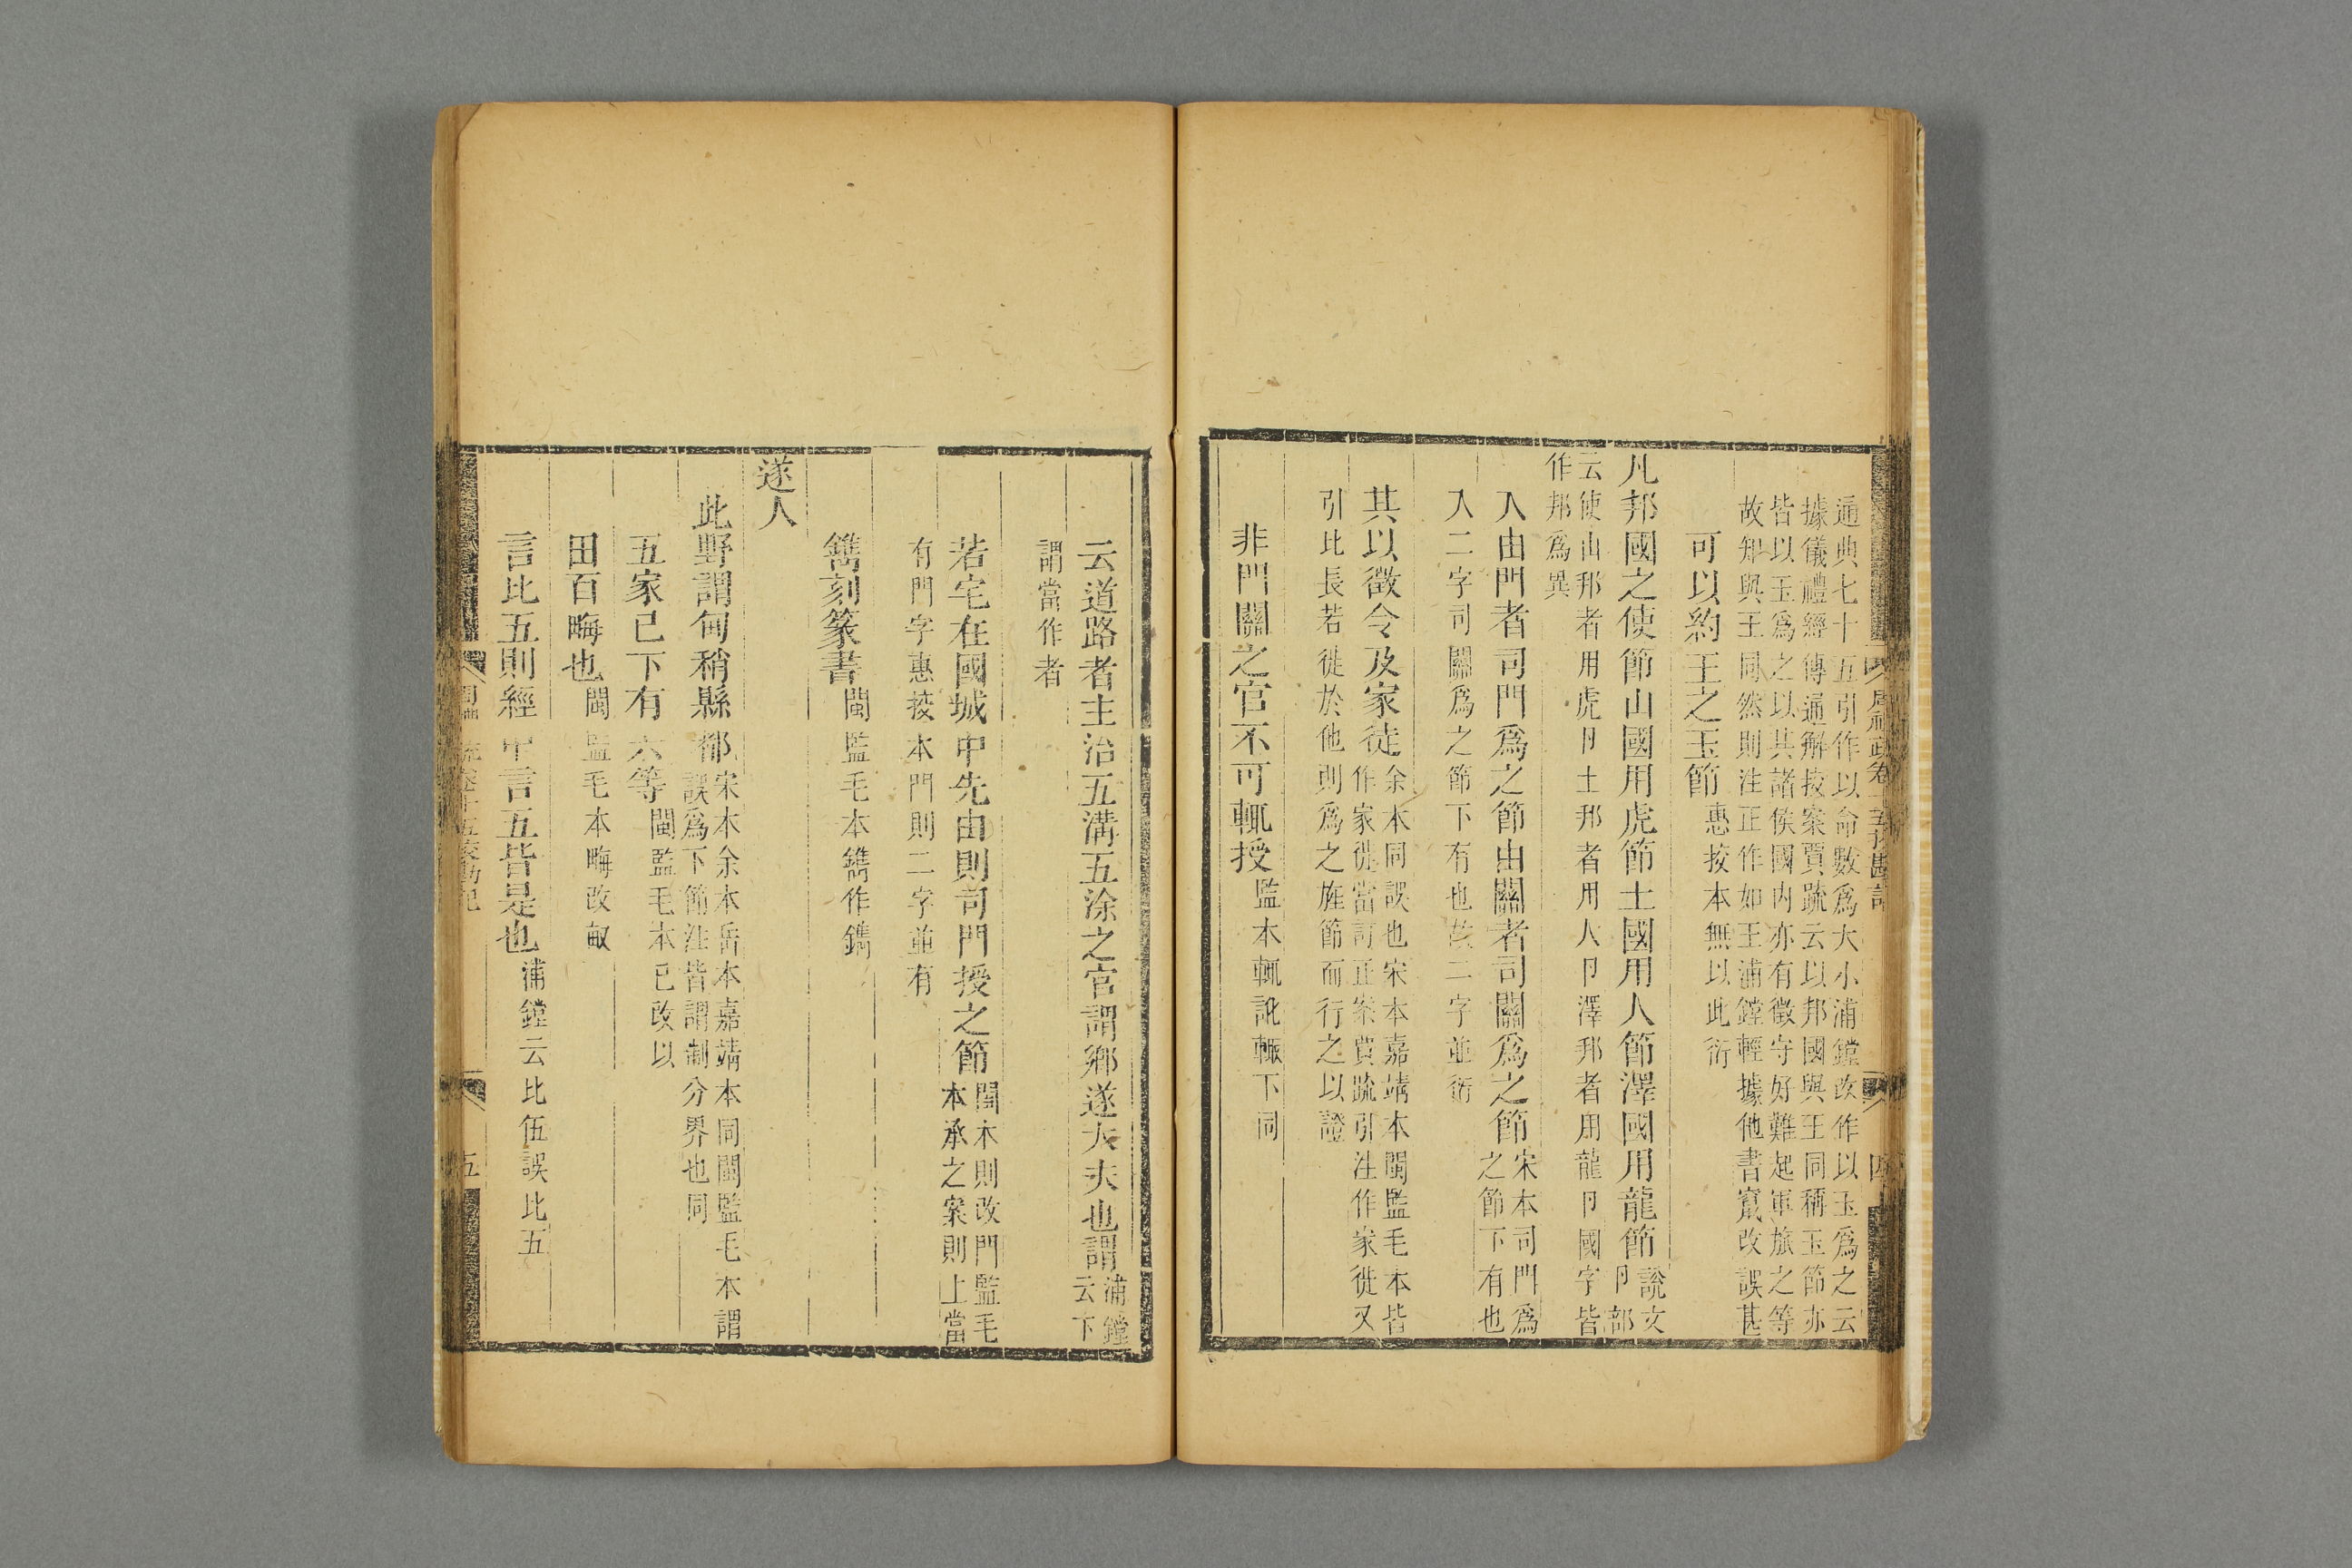 通典七十五引作以命數爲大小浦鏜改作以玉爲之云
據儀禮經傳通解挍案賈疏云以邦國與王同稱玉節亦
皆以玉爲之以其諸侯國内亦有徵守好難起軍旅之等
故知與王同然則注正作如王浦鏜輕據他書竄改誤甚
可以約王之玉節惠挍本無以此衍
凡邦國之使節山國用虎節土國用人節澤國用龍節說文卪部
云使山邦者用虎卪土邦者用人卪澤邦者用龍卪國字皆
作邦爲異
入由門者司門爲之節由關者司關爲之節宋本司門爲之節下有也
入二字司關爲之節下有也故二字並衍
其以徵令及家徒余本同誤也宋本嘉靖本閩監毛本皆作家徙當訂正案賈疏引注作家徙又
引比長若徙於他則爲之旌節而行之以證
非門關之官不可輒授監本輒訛輙下同
云道路者主治五溝五涂之官謂鄉遂大夫也謂浦鏜云下
謂當作者
若宅在國城中先由則司門授之節閩本則改門監毛本承之案則上當
有門字惠挍本門則二字並有
鐫刻篆書閩監毛本鐫作鐫
遂人
此野謂甸稍縣都宋本余本岳本嘉靖本同閩監毛本謂誤爲下節注皆謂制分界也同
五家已下有六等閩監毛本已改以
田百畮也閩監毛本畮改畝
言比五則經中言五皆是也浦鏜云比伍誤比五
五